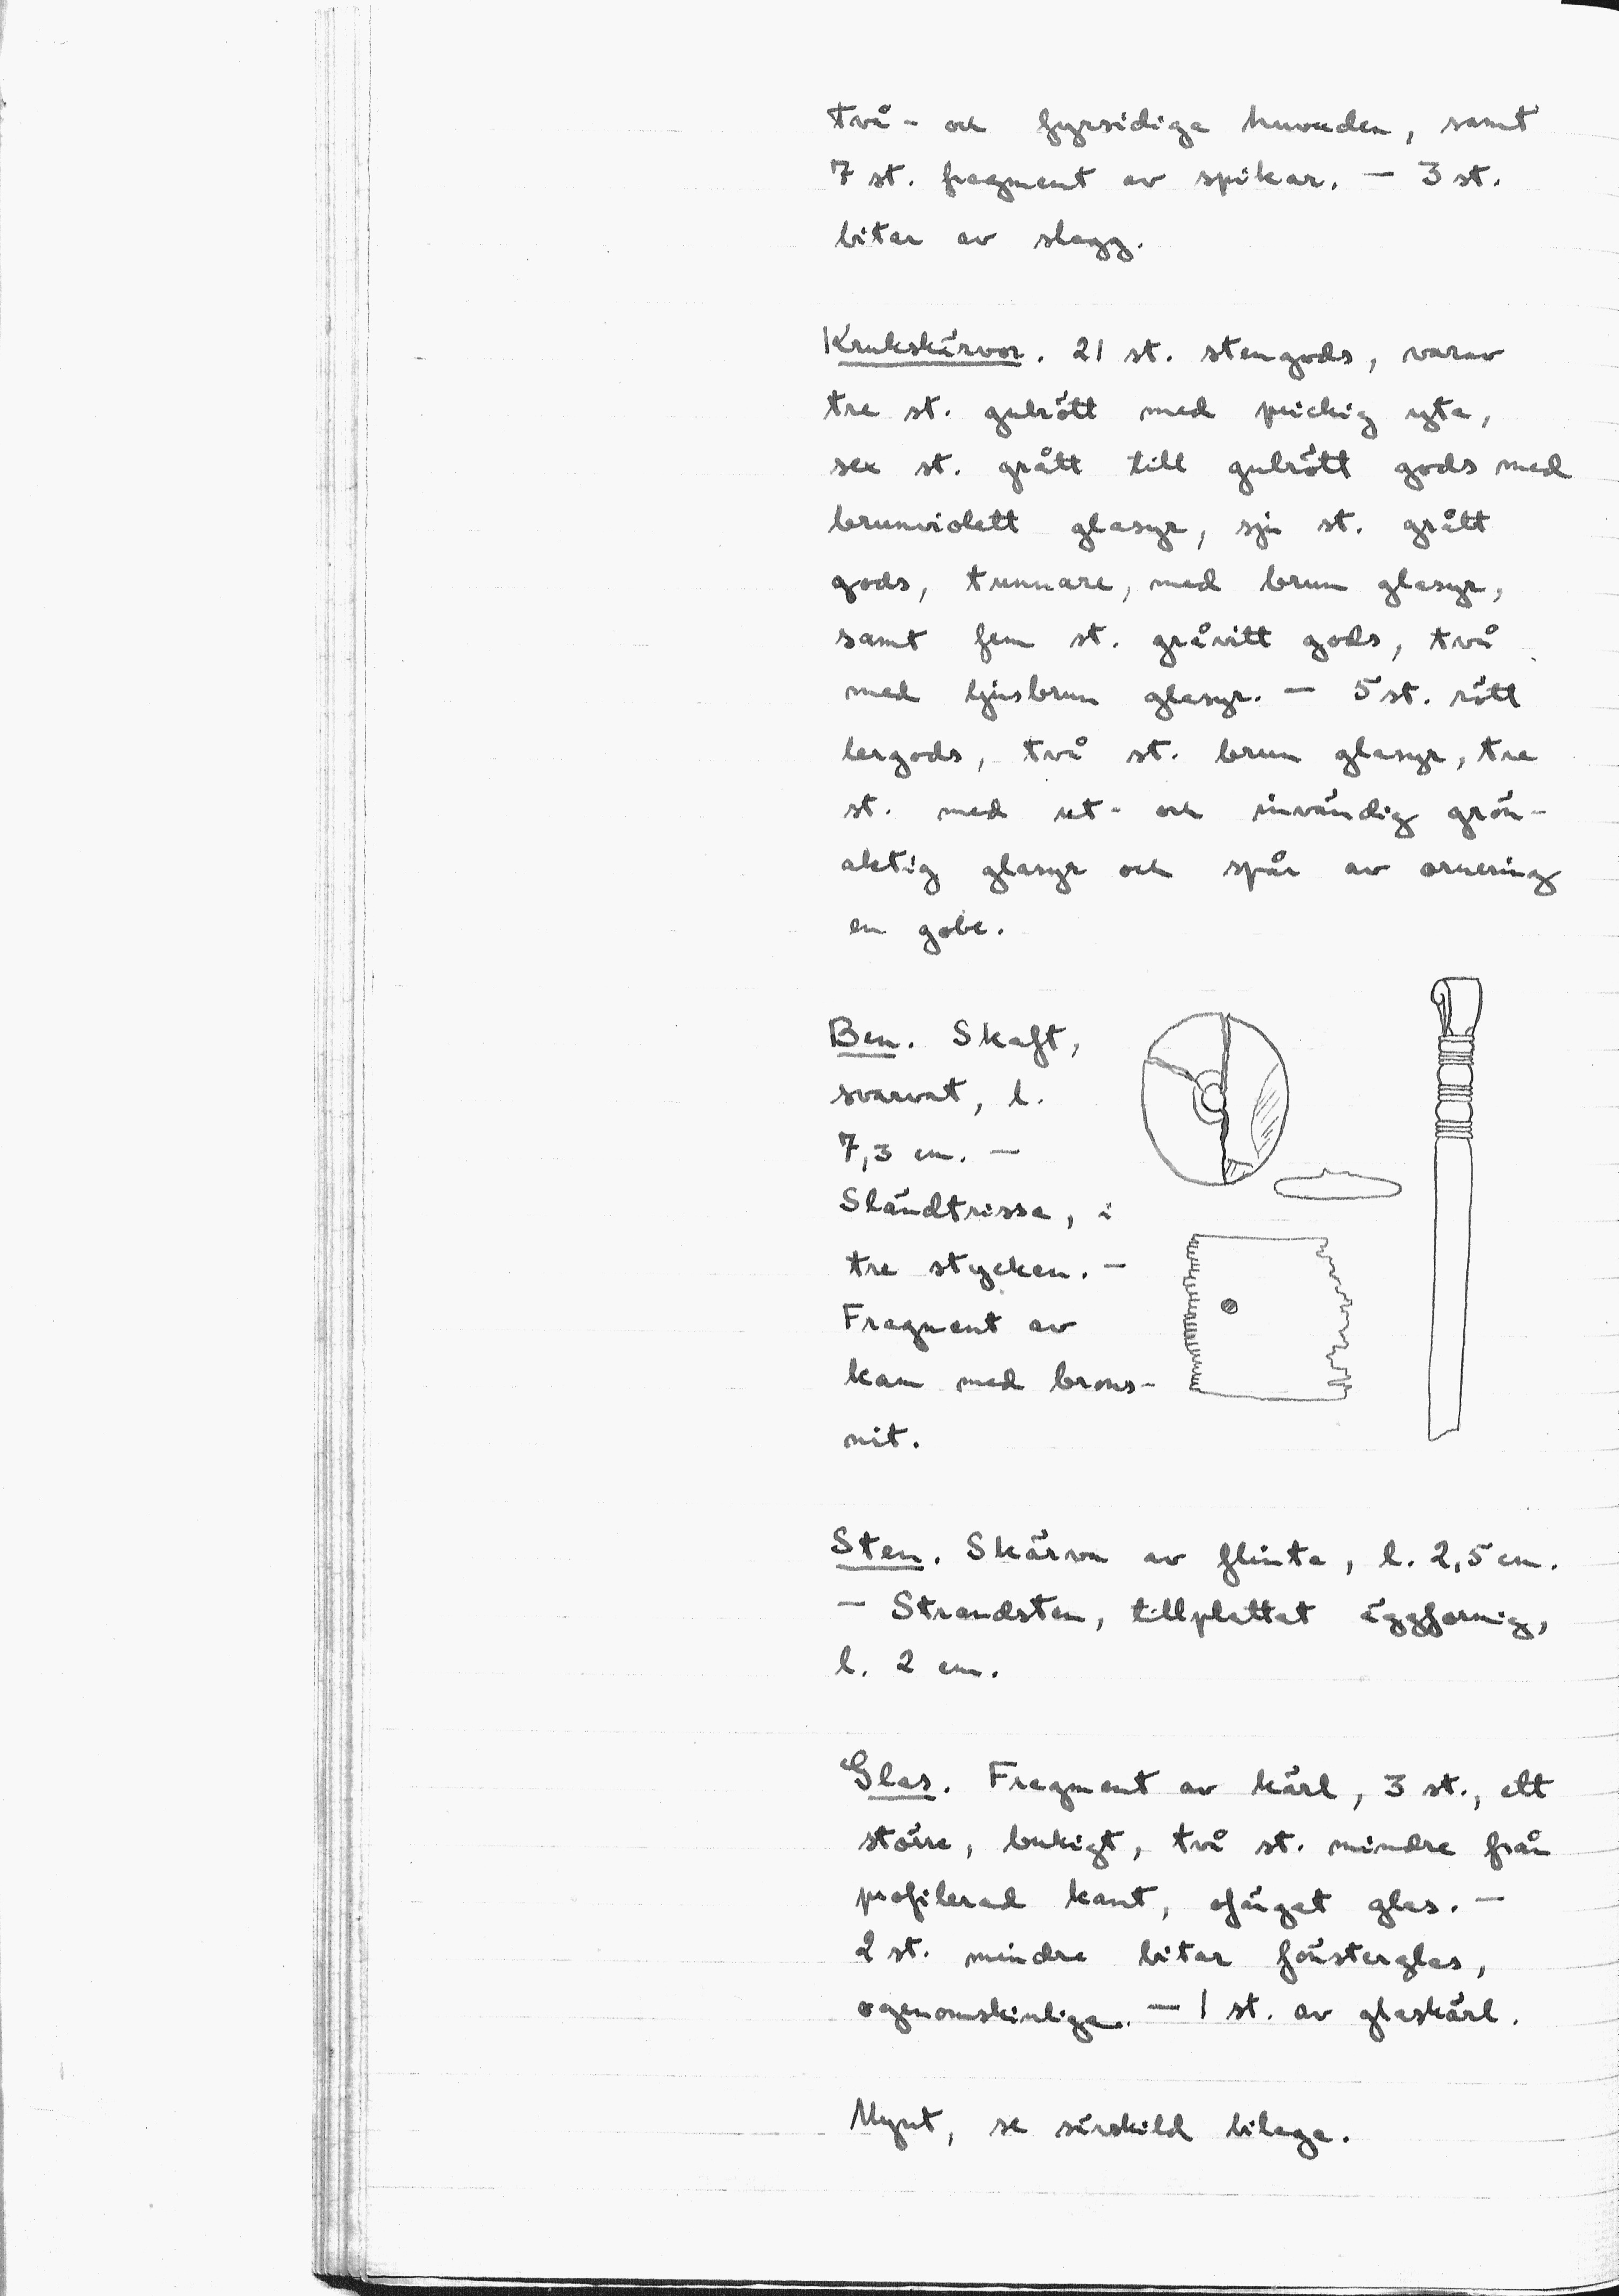 två- och fyrsidiga huvuden, samt
7 st. fragment av spikar. — 3 st.
bitar av slagg.
Krukskärvor. 21 st. stengods, varav
tre st. gulrött med prickig yta,
sex st. grått till gulrött gods med
brunviolett glasyr, sju st. grått
gods, tunnare, med brun glasyr,
samt fem st. gråvitt gods, två
med ljusbrun glasyr. — 5 st. rött
lergods, två st. brun glasyr, tre
st. med ut- och invändig grön-
aktig glasyr och spår av ornering
en gobe.
Ben. Skaft,
svarvat, l.
7,3 cm. —
Sländtrissa, i
tre stycken. —
Fragment av
kam med brons-
nit.
Sten. Skärva av flinta, l. 2,5 cm.
— Strandsten, tillplattat äggformig,
l. 2 cm.
Glas. Fragment av kärl, 3 st., ett
större, bukigt, två st. mindre från
profilerad kant, ofärgat glas. —
2 st. mindre bitar fönsterglas,
ogenomskinliga. — 1 st. av glaskärl.
Mynt, se särskild bilaga.